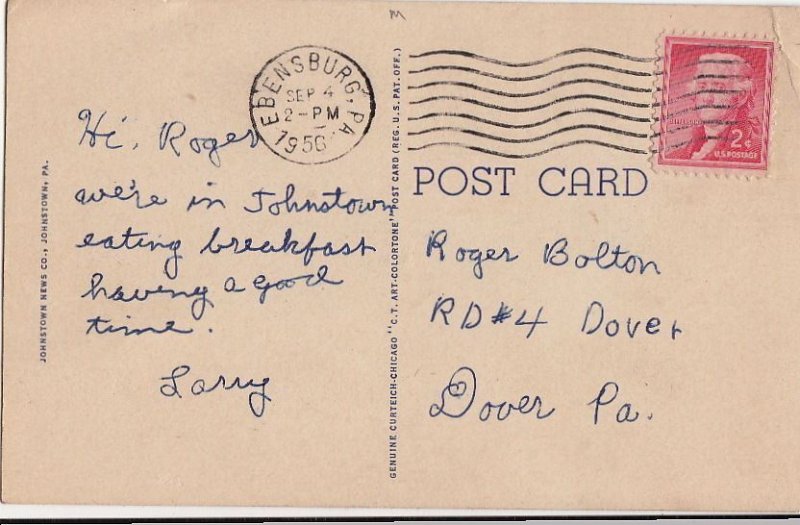 M
EBENSBURG, PA.
SEP 4
2-PM
1956
JEFFERSON
2¢
U.S. POSTAGE
POST CARD
Hi, Roger
we're in Johnstown
eating breakfast
having a good
time.
Larry
Roger Bolton
RD#4 Dover
Dover Pa.
JOHNSTOWN NEWS CO., JOHNSTOWN, PA.
GENUINE CURTEICH-CHICAGO "C.T. ART-COLORTONE" POST CARD (REG. U.S. PAT. OFF.)